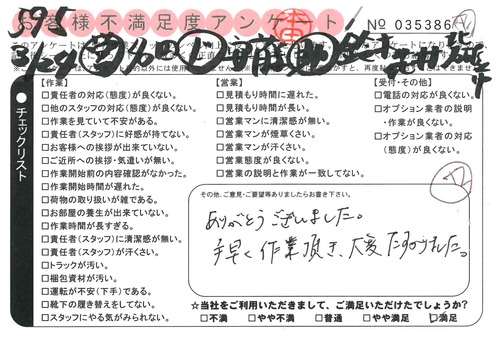 お客様不満足度アンケート
No 035386
【作業】
□責任者の対応(態度)が良くない。
□他のスタッフの対応(態度)が良くない。
□作業を見ていて不安がある。
□責任者(スタッフ)に好感が持てない。
□お客様への挨拶が出来ていない。
□ご近所への挨拶・気遣いが無い。
□作業開始前の内容確認がなかった。
□作業開始時間が遅れた。
□荷物の取り扱いが雑である。
□お部屋の養生が出来ていない。
□作業時間が長すぎる。
□責任者(スタッフ)に清潔感が無い。
□責任者(スタッフ)が汗くさい。
□トラックが汚い。
□梱包資材が汚い。
□運転が不安(下手)である。
□靴下の履き替えをしてない。
□スタッフにやる気がみられない。
チェックリスト
【営業】
□見積もり時間に遅れた。
□見積もり時間が長い。
□営業マンに清潔感が無い。
□営業マンが煙草くさい。
□営業マンが汗くさい。
□営業態度が良くない。
□営業の説明と作業が一致してない。
【受付・その他】
□電話の対応が良くない。
□オプション業者の説明
・作業が良くない。
□オプション業者の対応
(態度)が良くない。
その他、ご意見・ご要望等ありましたらお書き下さい。
ありがとうございました。
手早く作業頂き、大変たすかりました。
☆当社をご利用いただきまして、ご満足いただけたでしょうか?
□不満 □やや不満 □普通 □やや満足 ☑満足